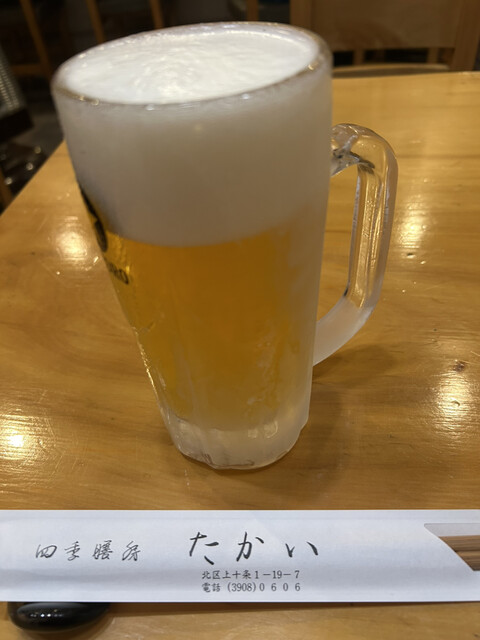 四季膳房 たかい
北区上十条1-19-7
電話 (3908)0606